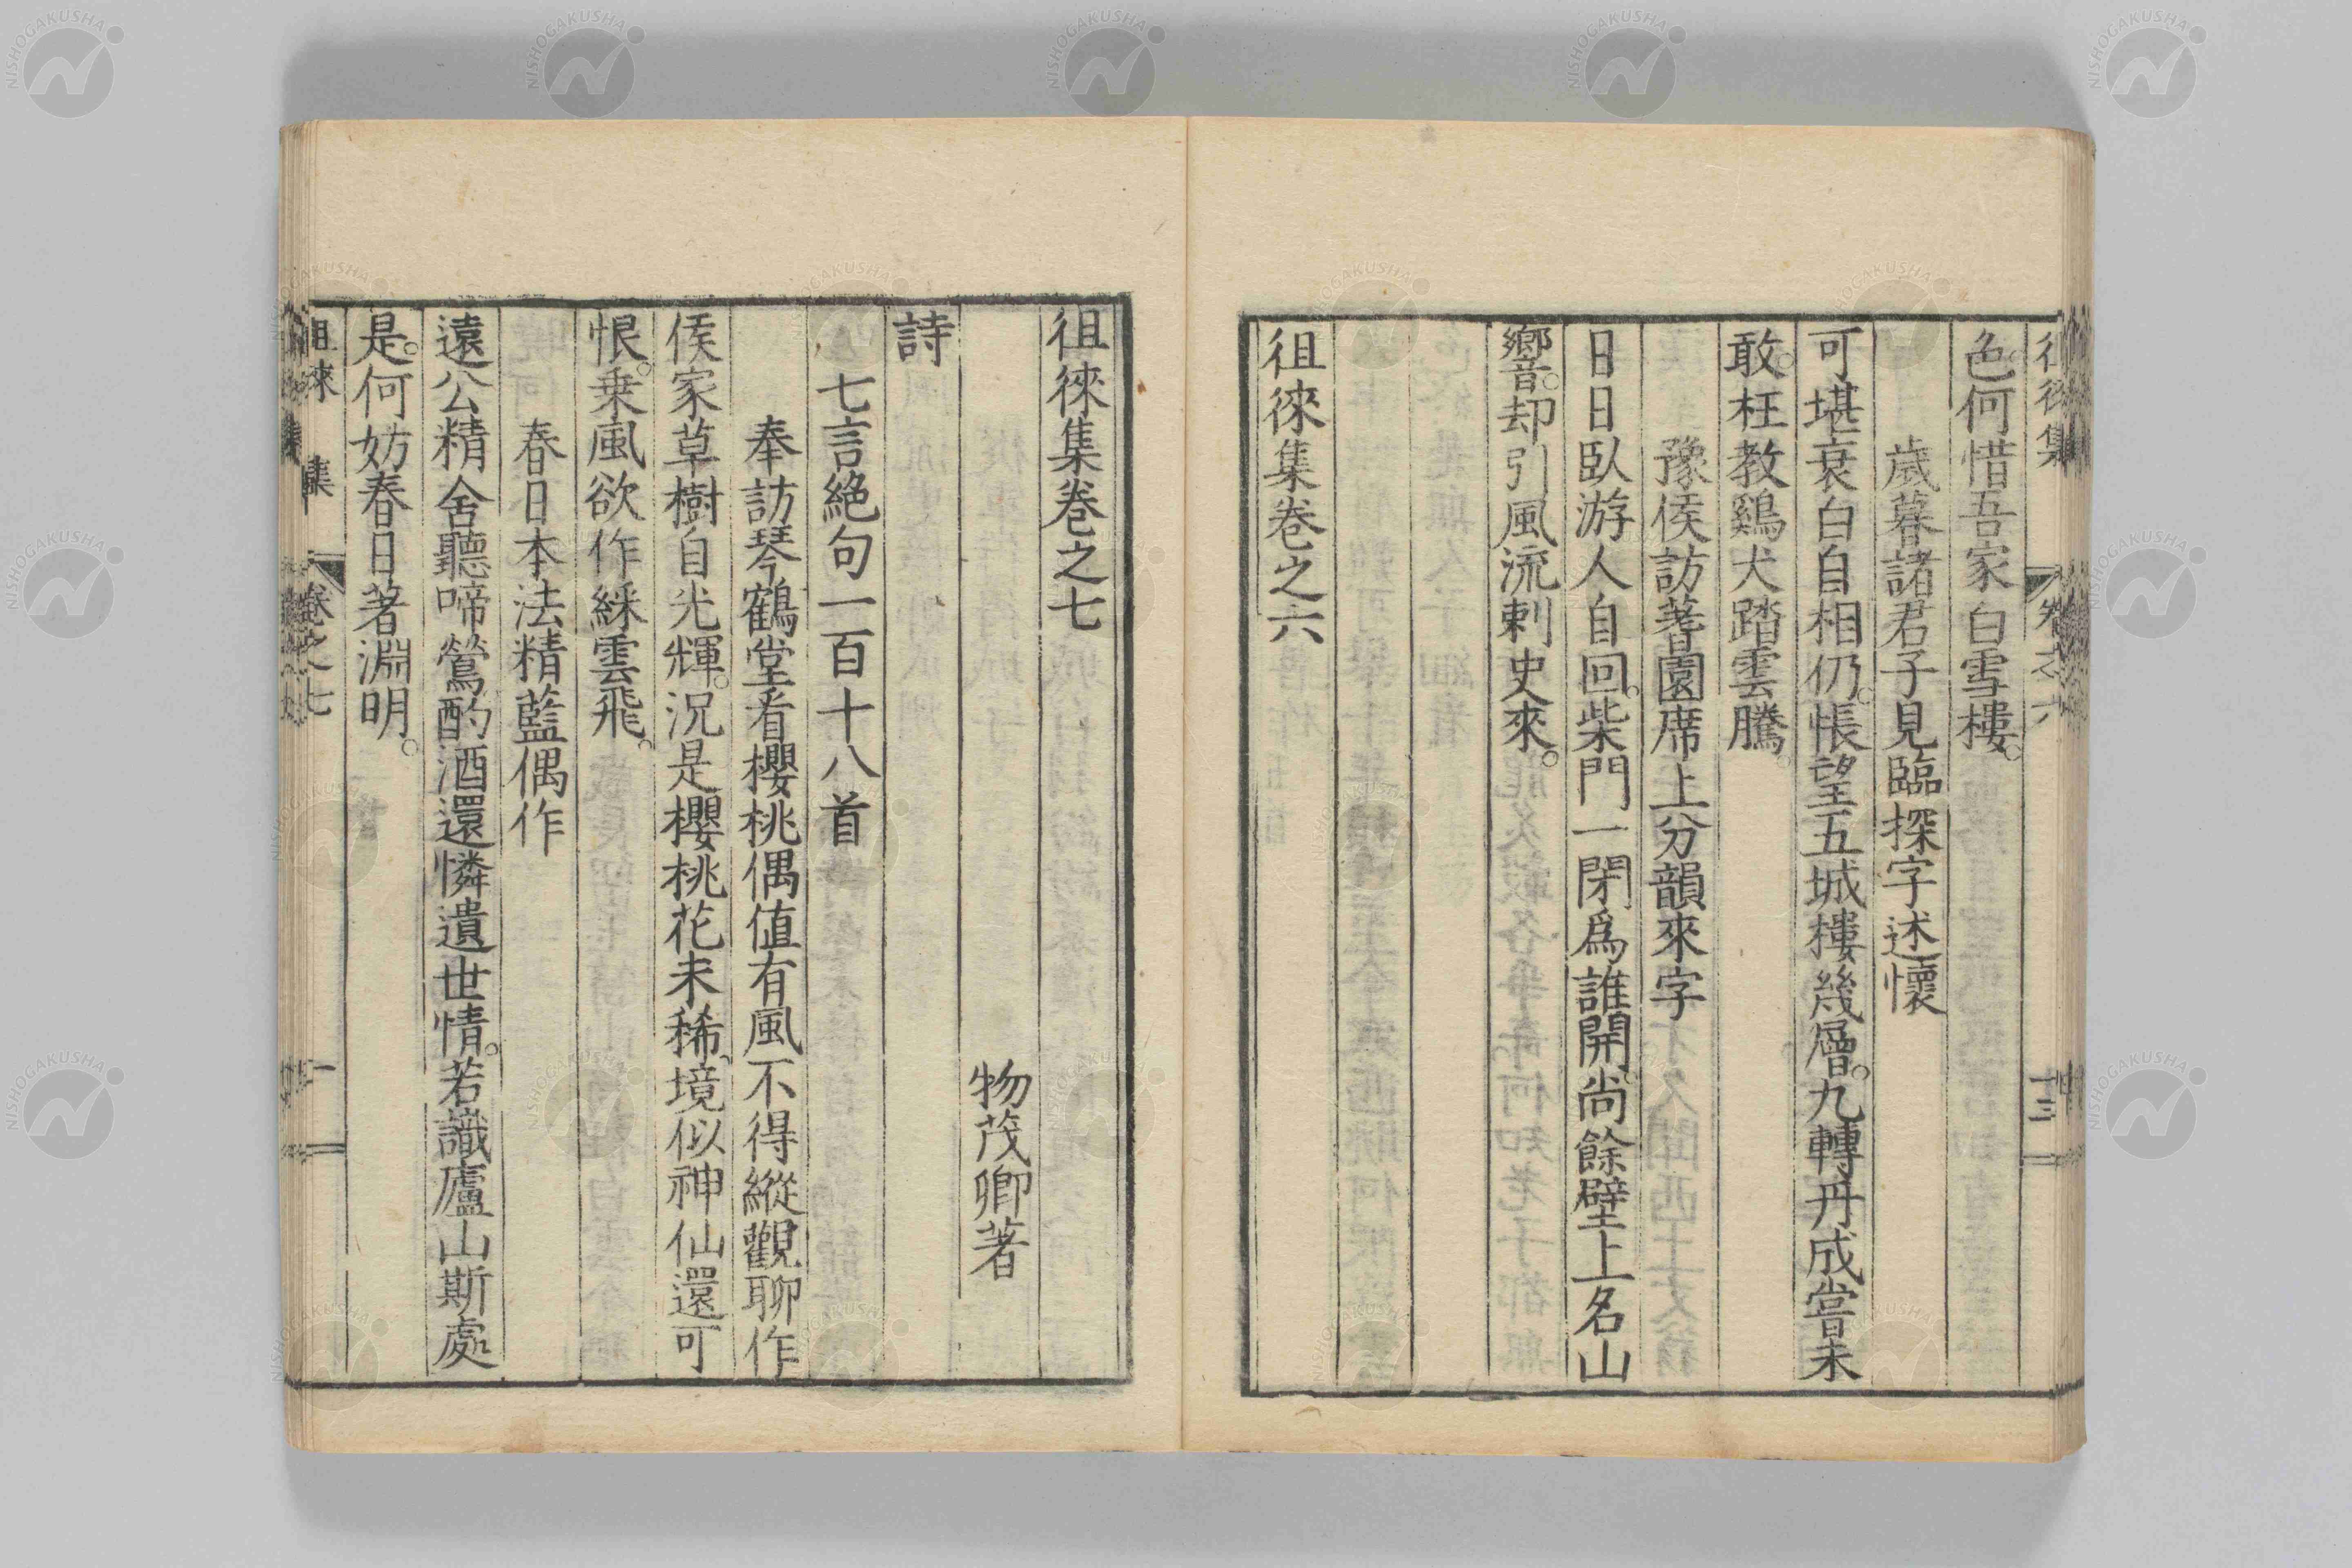 徂徠集
卷之六
色。何惜吾家白雪樓。
歲暮諸君子見臨探字述懷
可堪衰白自相仍。悵望五城樓幾層。九轉丹成嘗未
敢。枉教鷄犬踏雲騰。
豫侯訪蓍園席上分韻來字
日日臥游人自回。柴門一閉爲誰開。尚餘壁上名山
響。却引風流刺史來。
徂徠集卷之六
徂徠集卷之七
物茂卿著
詩
七言絕句一百十八首
奉訪琴鶴堂看櫻桃偶值有風不得縱觀聊作
侯家草樹自光輝。況是櫻桃花未稀。境似神仙還可
恨。乗風欲作綵雲飛。
春日本法精藍偶作
遠公精舍聽啼鶯酌酒還憐遺世情。若識廬山斯處
是。何妨春日著淵明。
徂徠集
卷之七
一
NISHOGAKUSHA